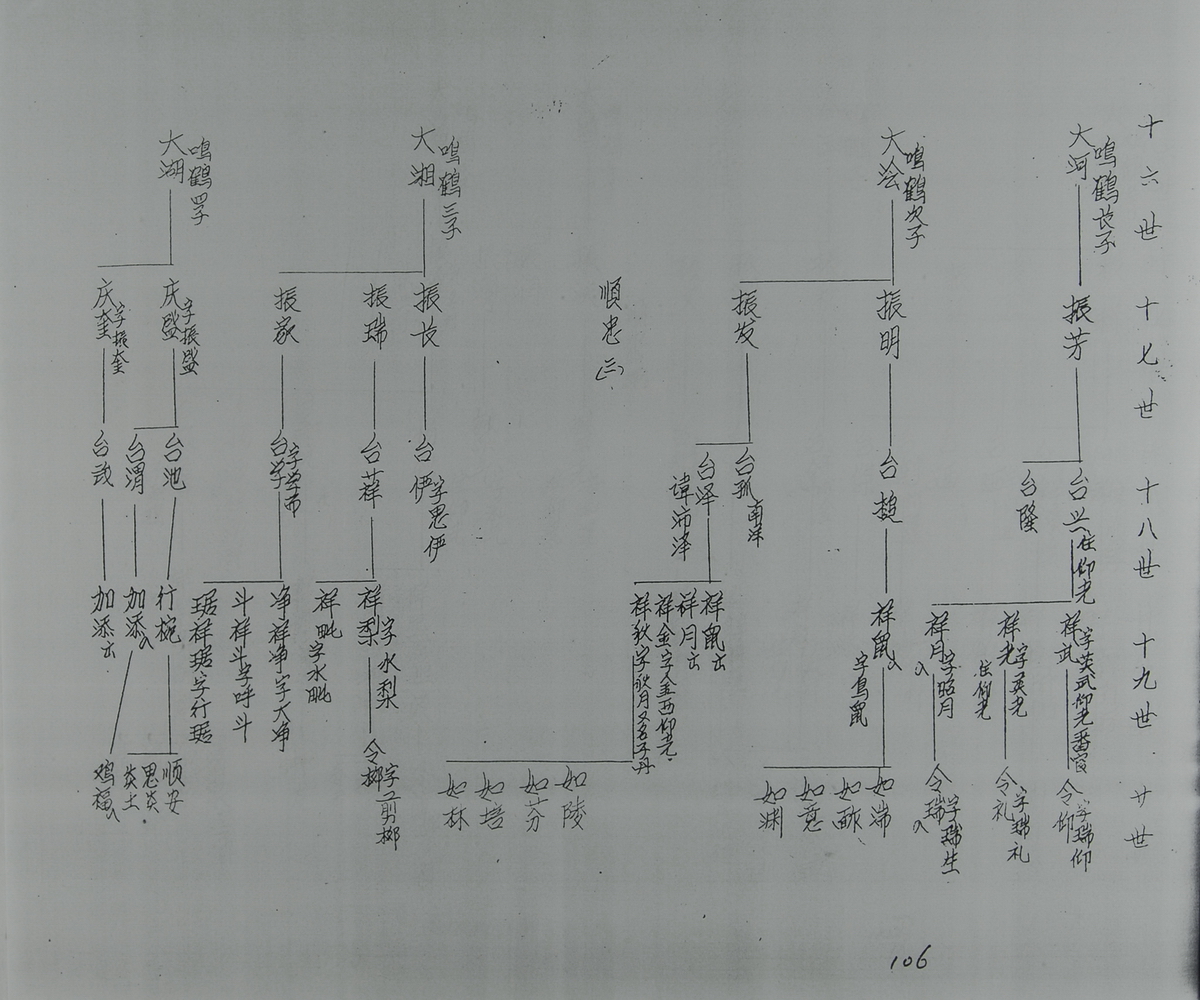 十六世
十七世
十八世
十九世
廿世
大河
鸣鹤长子
振芳
台兴
住仰光
台隆
祥武
字英武仰光番官
祥光
字英光
住仰光
祥月入
字昭月
令仰
字瑞仰
令礼
字瑞礼
令瑞入
字瑞生
大浍
鸣鹤次子
振明
振发
台
祥鼠入
字鸟鼠
如端
如
如意
如渊
台孤
南洋
台泽
讳沛泽
祥鼠出
祥月出
祥金字金西仰光
祥秋字秋月又名子丹
如陵
如芬
如培
如林
顺忠(三)
大湘
鸣鹤三子
振长
振瑞
振家
台伊
字思伊
台祥
台学
字学而
祥梨
字水梨
祥毗
字水毗
令榔
字剪榔
净祥净字天净
斗祥斗字呼斗
琚祥琚字行琚
大湖
鸣鹤四子
庆盛
字振盛
庆奎
字振奎
台池
台渭
台武
行椀
加添入
加添出
顺安
思炎
炎土
鸡福入
106